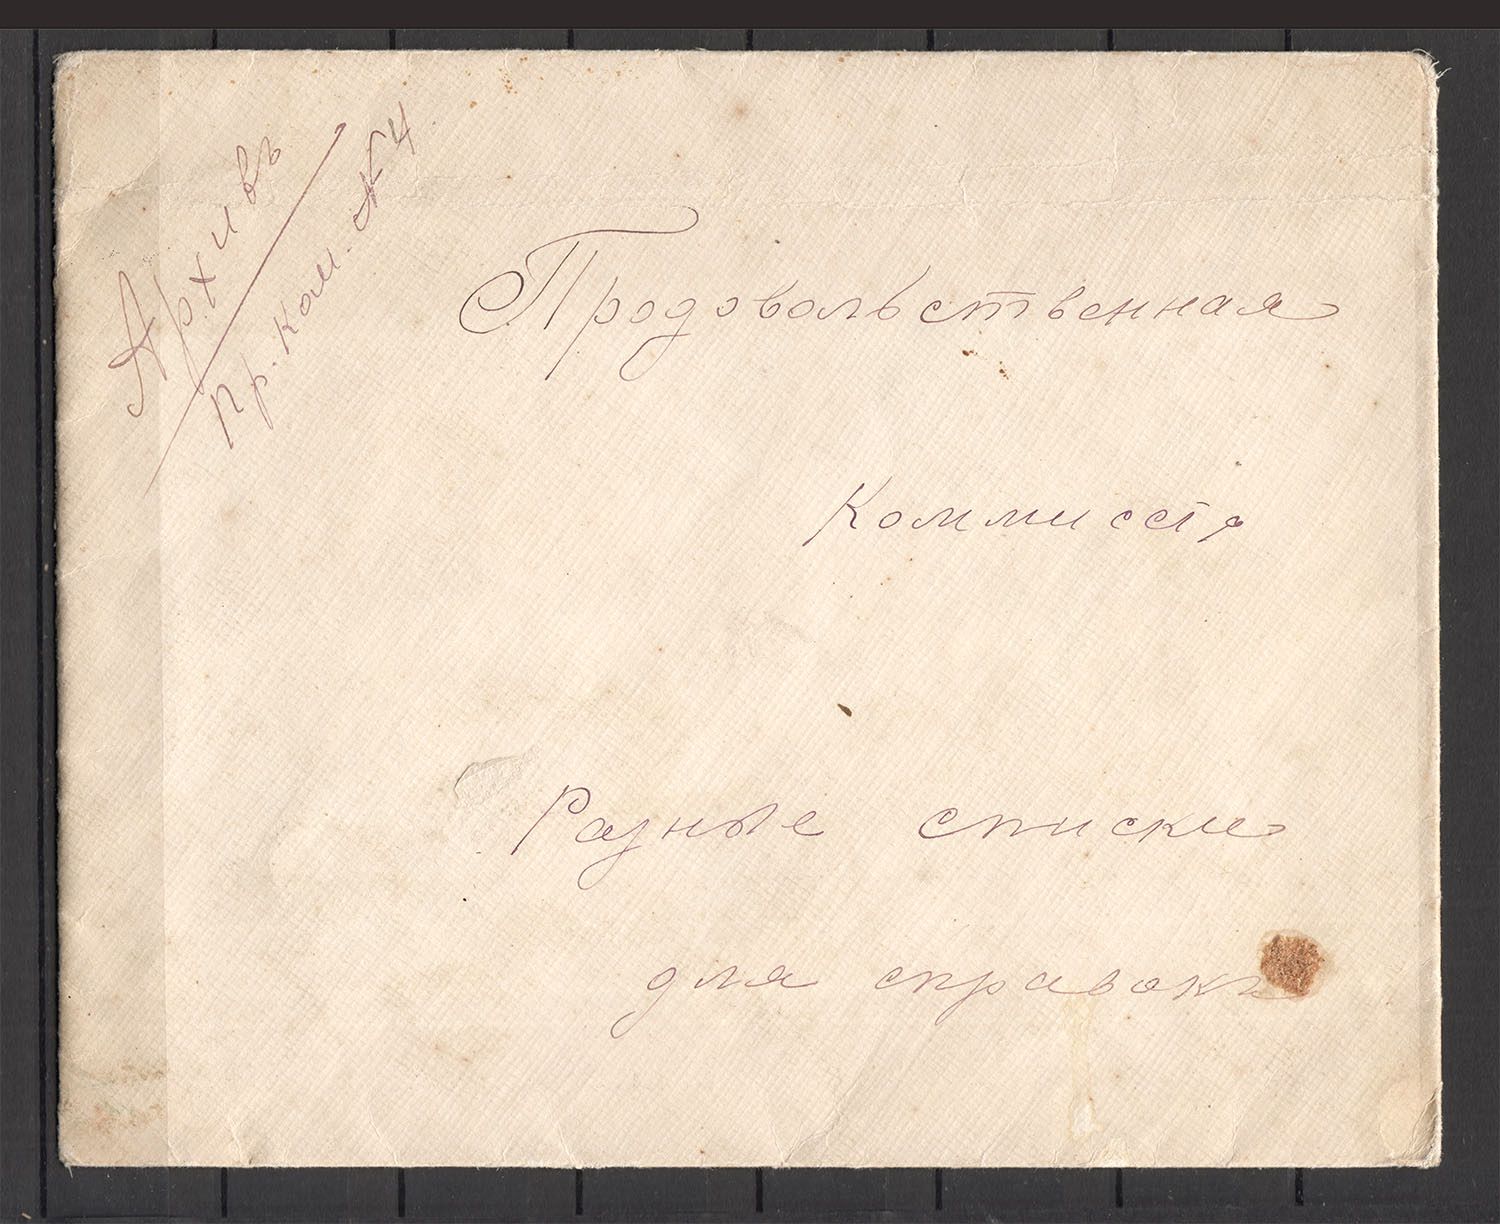 Архивъ
Пр. Ком. № 4
Продовольственная
Коммиссія
Разные списки
для справокъ